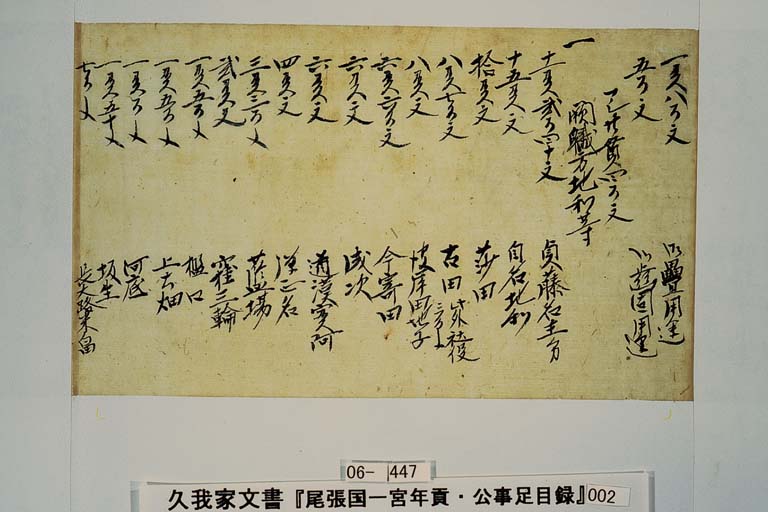 一貫八百文 御疊用途
五百文 用途
貫四百文
一 闕職方地利等
十一貫弐百四十文 貞藤名主分
十五貫文 自名地利
拾貫文 莎田
八貫七百文 吉田 此外社役 三百文
八貫文 彼岸田地子
六貫六百文 今寄田
六貫文 成次
六貫文 道漢実阿
四貫文 正名
三貫三百文 藍場
弐貫文 窪三輪
一貫五百文 樋口
一貫五百文 上吉畑
一貫百文 河底
一貫五十文 坂生
七百文
06- 447
久我家文書『尾張国一宮年貢・公事足目録』002